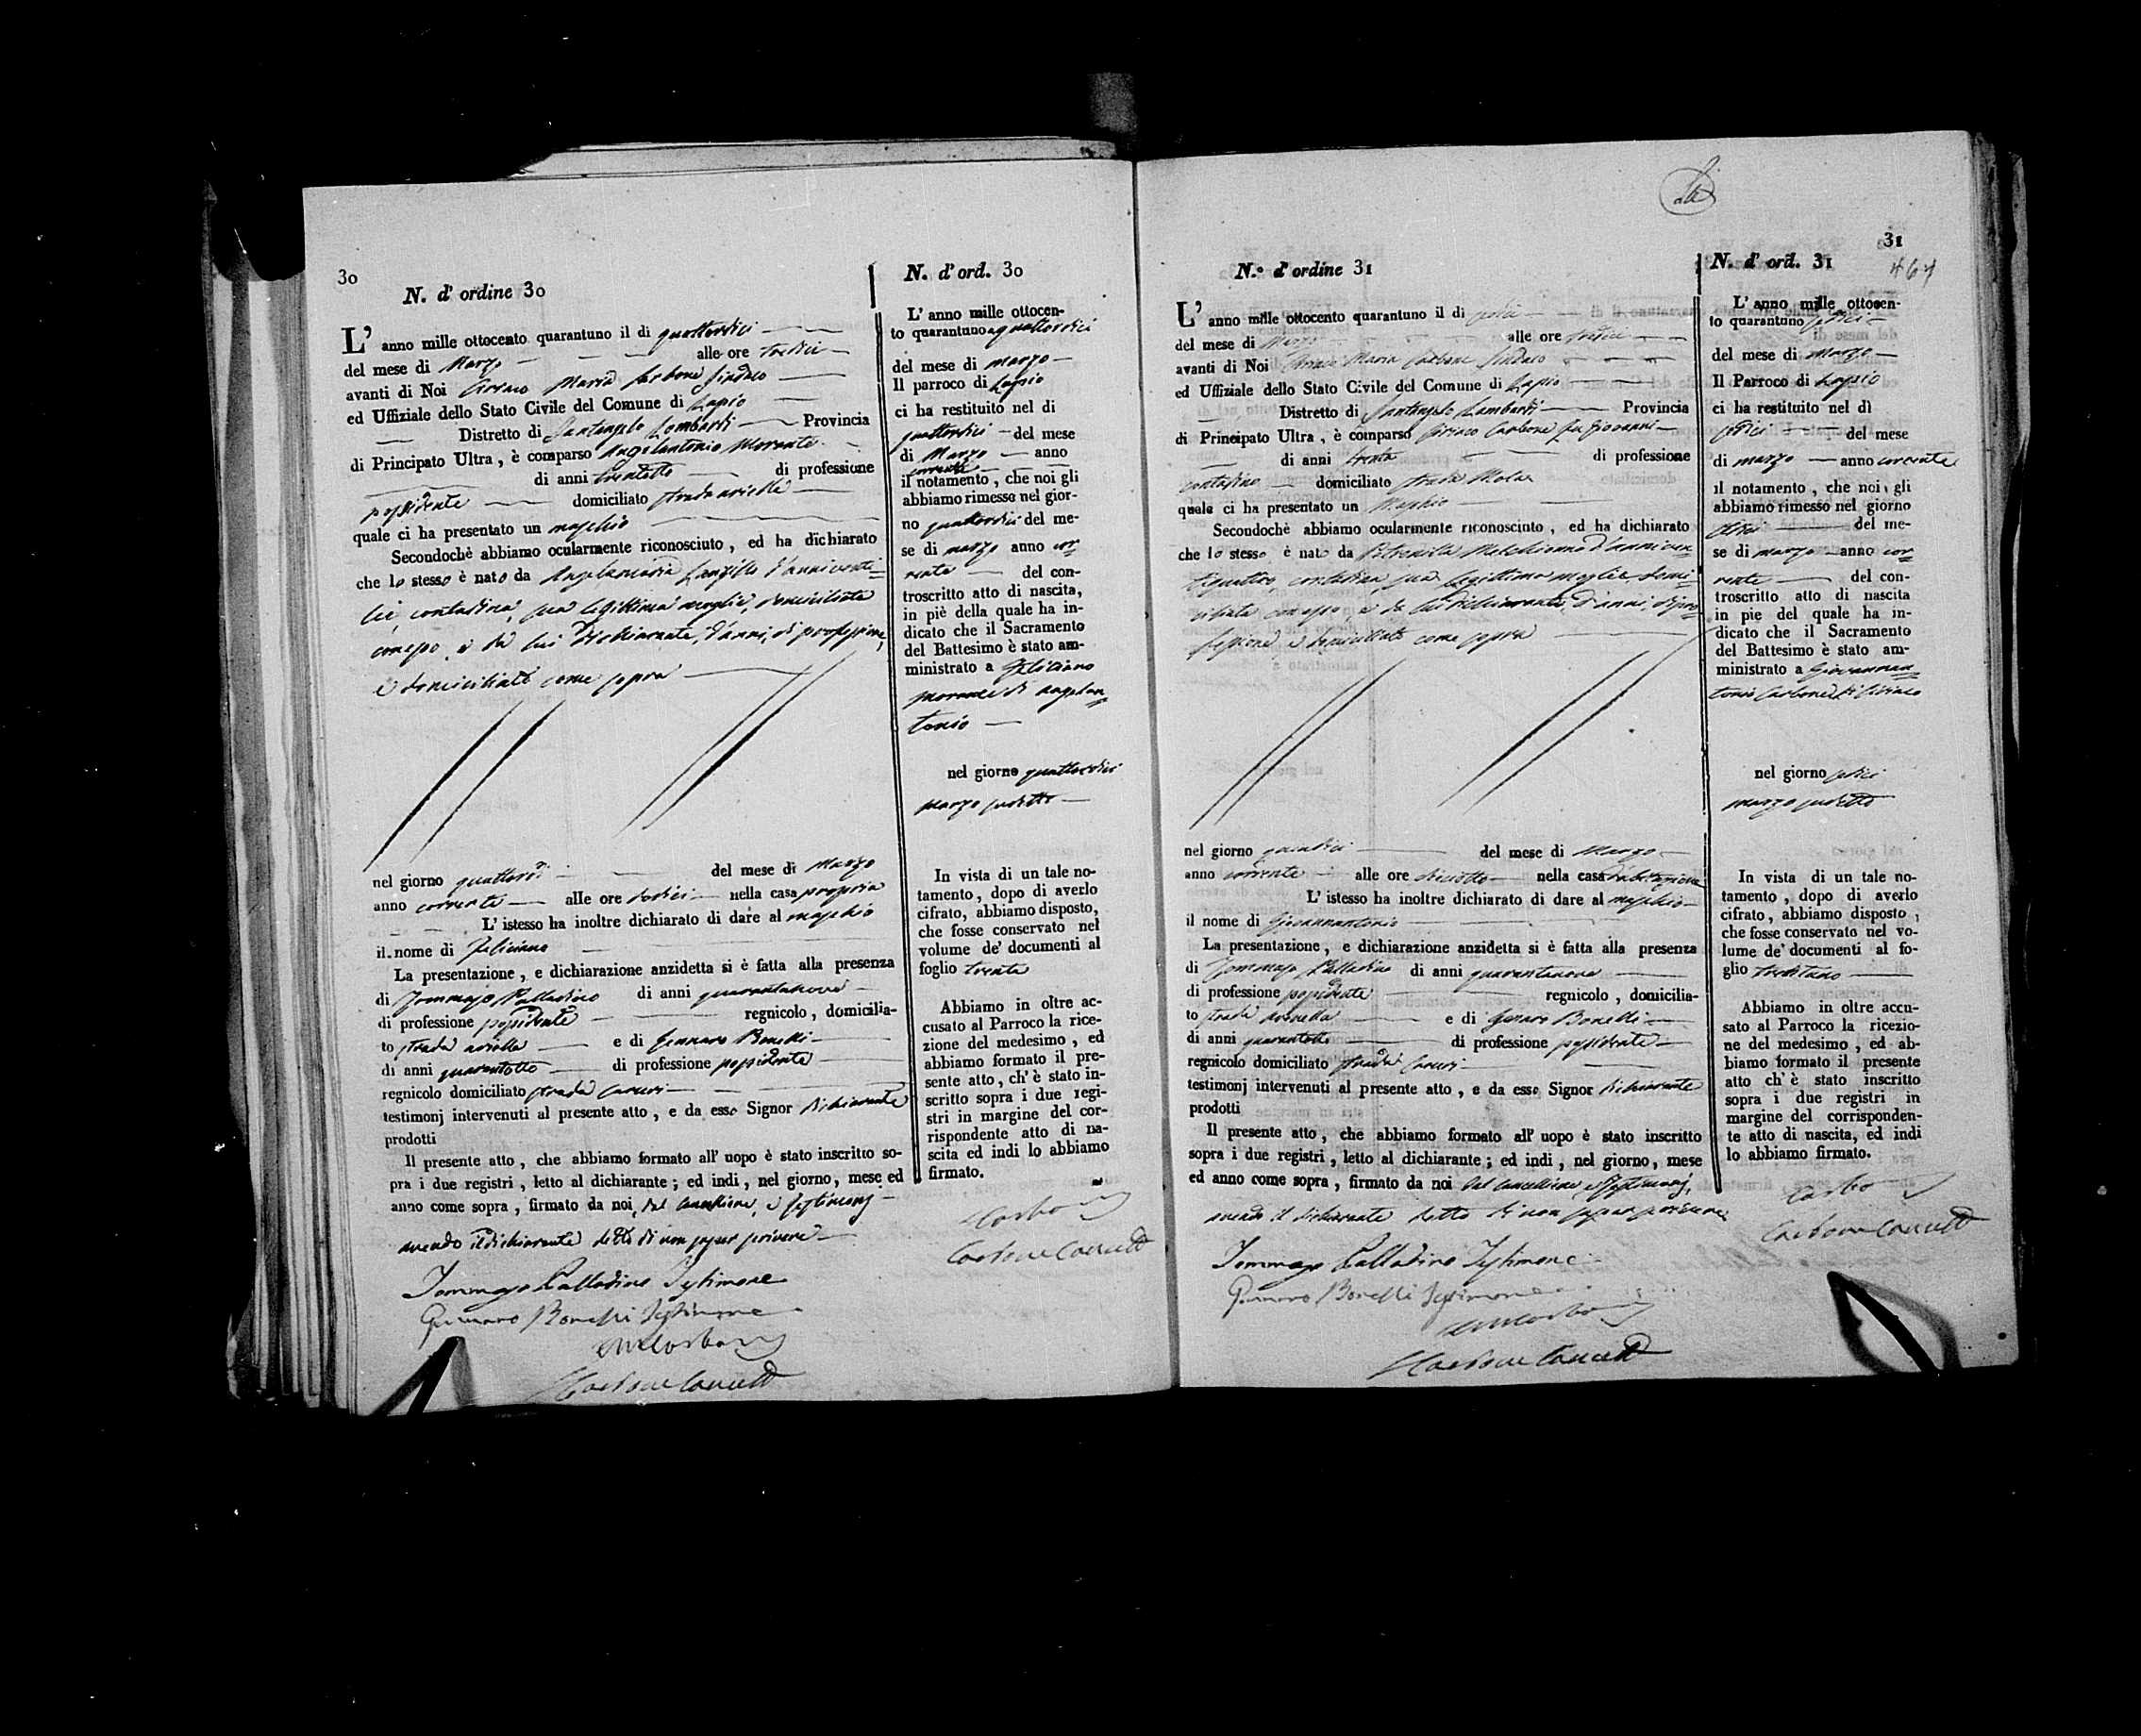 30
N. d' ordine 30
L' anno mille ottocento quarantuno il di quattordici
del mese di Marzo alle ore tredici
avanti di Noi Ciriaco Maria Carbone Sindaco
ed Uffiziale dello Stato Civile del Comune di Lapio
Distretto di Santangelo Lombardi Provincia
di Principato Ultra, è comparso Angelantonio Morante
di anni trentotto di professione
possidente domiciliato strada
quale ci ha presentato un maschio
Secondochè abbiamo ocularmente riconosciuto, ed ha dichiarato
che lo stesso è nato da Angelamaria d'anni venti=
sei, contadina, sua legittima moglie, domiciliata
con esso, e da lui dichiarante, d'anni, di professione,
e domiciliato come sopra
nel giorno quattordici del mese di Marzo
anno corrente alle ore dodici nella casa propria
L' istesso ha inoltre dichiarato di dare al maschio
il nome di Feliciano
La presentazione, e dichiarazione anzidetta si è fatta alla presenza
di Tommaso Palladino di anni quarantanove
di professione possidente regnicolo, domicilia-
to strada e di Gennaro Bonelli
di anni quarantotto di professione possidente
regnicolo domiciliato strada
testimonj intervenuti al presente atto, e da esso Signor dichiarante
prodotti
Il presente atto, che abbiamo formato all' uopo è stato inscritto so-
pra i due registri, letto al dichiarante; ed indi, nel giorno, mese ed
anno come sopra, firmato da noi, dal cancelliere, e testimonj
avendo il dichiarante detto di non saper scrivere
Tommaso Palladino Testimone
Gennaro Bonelli Testimone
Carbone
Carbone Cancell
N. d' ord. 30
L' anno mille ottocen-
to quarantuno a quattordici
del mese di marzo
Il parroco di Lapio
ci ha restituito nel di
quattordici del mese
di Marzo anno
corrente
il notamento, che noi gli
abbiamo rimesso nel gior-
no quattordici del me-
se di marzo anno cor=
rente del con-
troscritto atto di nascita,
in piè della quale ha in-
dicato che il Sacramento
del Battesimo è stato am-
ministrato a Feliciano
Morante di Angelan=
tonio
nel giorno quattordici
marzo sudetto
In vista di un tale no-
tamento, dopo di averlo
cifrato, abbiamo disposto,
che fosse conservato nel
volume de' documenti al
foglio trenta
Abbiamo in oltre ac-
cusato al Parroco la rice-
zione del medesimo, ed
abbiamo formato il pre-
sente atto, ch' è stato in-
scritto sopra i due regi-
stri in margine del cor-
rispondente atto di na-
scita ed indi lo abbiamo
firmato.
Carbone
Carbone Cancell
31
464
N.° d' ordine 31
L' anno mille ottocento quarantuno il di sedici
del mese di Marzo alle ore tredici
avanti di Noi Ciriaco Maria Carbone Sindaco
ed Uffiziale dello Stato Civile del Comune di Lapio
Distretto di Santangelo Lombardi Provincia
di Principato Ultra, è comparso Ciriaco Carbone fu Giovanni
di anni trenta di professione
contadino domiciliato strada
quale ci ha presentato un Maschio
Secondochè abbiamo ocularmente riconosciuto, ed ha dichiarato
che lo stesso è nato da Petronilla d'anni ven=
tiquattro, contadina, sua legittima moglie domi=
ciliata con esso, e da lui dichiarante, d'anni, di pro=
fessione e domiciliato come sopra
nel giorno quindici del mese di Marzo
anno corrente alle ore diciotto nella casa d'abitazione
L' istesso ha inoltre dichiarato di dare al maschio
il nome di Giovannantonio
La presentazione, e dichiarazione anzidetta si è fatta alla presenza
di Tommaso Palladino di anni quarantanove
di professione possidente regnicolo, domicilia-
to strada e di Gennaro Bonelli
di anni quarantotto di professione possidente
regnicolo domiciliato strada
testimonj intervenuti al presente atto, e da esso Signor dichiarante
prodotti
Il presente atto, che abbiamo formato all' uopo è stato inscritto
sopra i due registri, letto al dichiarante; ed indi, nel giorno, mese
ed anno come sopra, firmato da noi dal cancelliere, e testimonj,
avendo il dichiarante detto di non saper scrivere
Tommaso Palladino Testimone
Gennaro Bonelli Testimone
Carbone
Carbone Cancell
N. d' ord. 31
L' anno mille ottocen-
to quarantuno sedici
del mese di marzo
Il Parroco di Lapio
ci ha restituito nel dì
sedici del mese
di marzo anno corrente
il notamento, che noi gli
abbiamo rimesso nel giorno
sedici del me-
se di marzo anno cor=
rente del con-
troscritto atto di nascita
in pie del quale ha in-
dicato che il Sacramento
del Battesimo è stato am-
ministrato a Giovannan=
tonio Carbone di Ciriaco
nel giorno sedici
marzo sudetto
In vista di un tale no-
tamento, dopo di averlo
cifrato, abbiamo disposto,
che fosse conservato nel vo-
lume de' documenti al fo-
glio trentuno
Abbiamo in oltre accu-
sato al Parroco la ricezio-
ne del medesimo, ed ab-
biamo formato il presente
atto ch' è stato inscritto
sopra i due registri in
margine del corrisponden-
te atto di nascita, ed indi
lo abbiamo firmato.
Carbone
Carbone Cancell